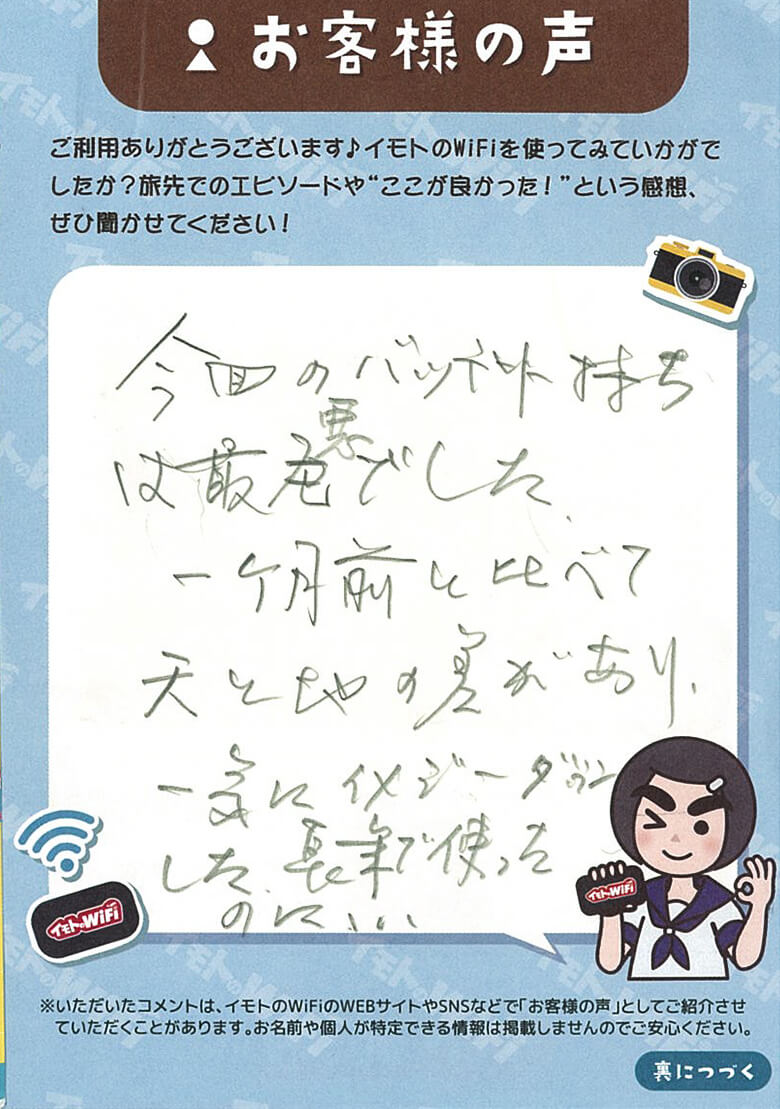 お客様の声
ご利用ありがとうございます♪イモトのWiFiを使ってみていかがで
したか？旅先でのエピソードや“ここが良かった！”という感想、
ぜひ聞かせてください！
今回のバッテリー持ち
悪
は最危でした、
一ケ月前と比べて
天と地の差があり、
一気にイメージダウン
した、長年で使った
のに、、、
イモトのWiFi
イモトのWiFi
※いただいたコメントは、イモトのWiFiのWEBサイトやSNSなどで「お客様の声」としてご紹介させ
ていただくことがあります。お名前や個人が特定できる情報は掲載しませんのでご安心ください。
裏につづく